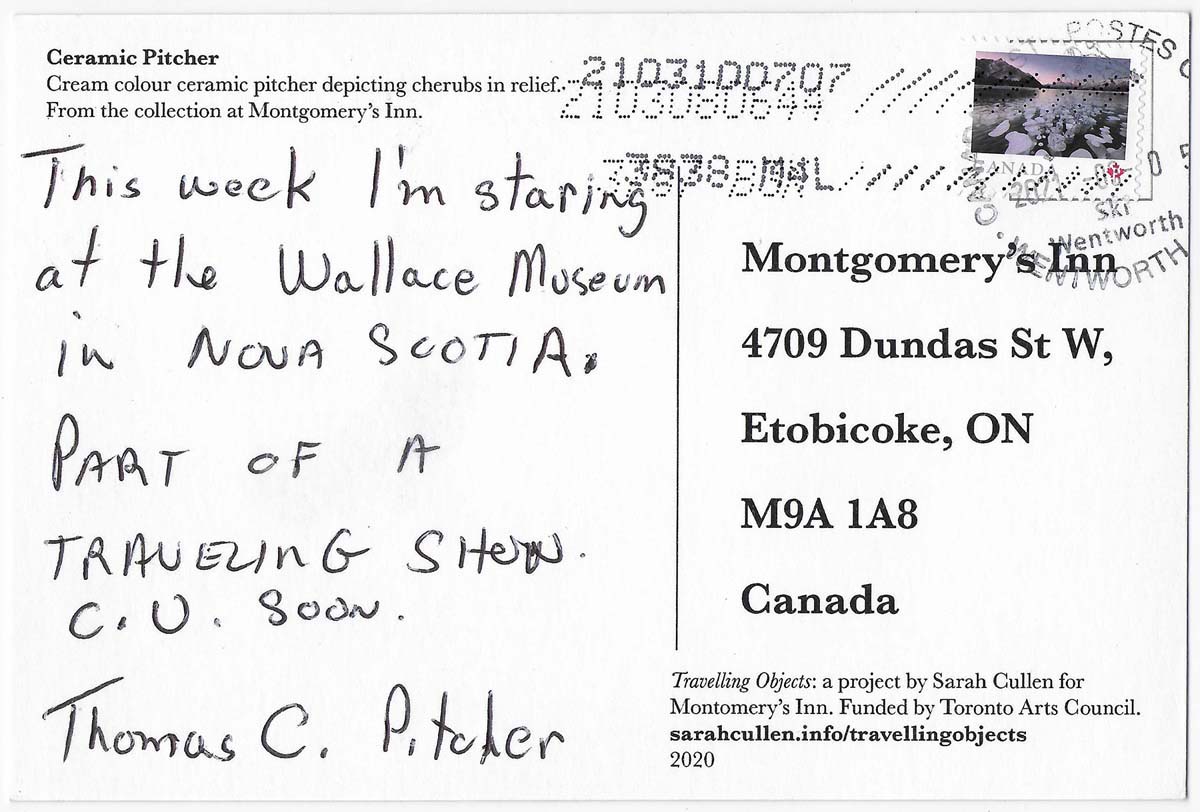 Ceramic Pitcher
Cream colour ceramic pitcher depicting cherubs in relief.
From the collection at Montgomery's Inn.
This week I'm staring
at the Wallace Museum
in NOVA SCOTIA.
PART OF A
TRAVELING SHOW.
C.U. SOON.
Thomas C. Pitcher
2103100707
2103080644
POSTES
CANADA
2021
Ski
Wentworth
WENTWORTH
Montgomery's Inn
4709 Dundas St W,
Etobicoke, ON
M9A 1A8
Canada
Travelling Objects: a project by Sarah Cullen for
Montomery's Inn. Funded by Toronto Arts Council.
sarahcullen.info/travellingobjects
2020